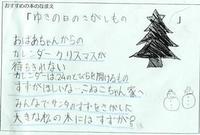 おすすめの本のなまえ
「ゆきの日のさがしもの」
おばあちゃんからの
カレンダー クリスマスが
待ちきれない
カレンダーは24のとびらを開けるもの
すずがほしいな…こねこちゃん家へ
みんなでサンタのすずをさがした
大きな松の木にはすずが？